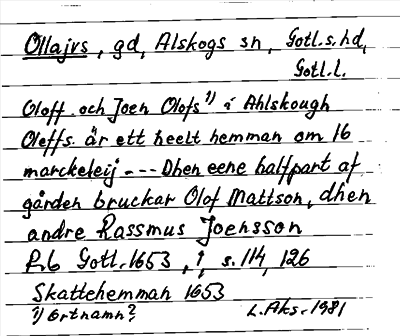 Ollajvs, gd, Alskogs sn, Gotl.s.hd,
Gotl.l.
Oloff och Joen Olofs¹⁾ i Ahlskough
Oleffs. är ett heelt hemman om 16
marckeleij --- Dhen eene halfpart af
gården bruckar Olof Mattson, dhen
andre Rassmus Joensson
Rrb Gotl. 1653, s. 114, 126
Skattehemman 1653
¹⁾ Ortnamn? L.Aks. 1981